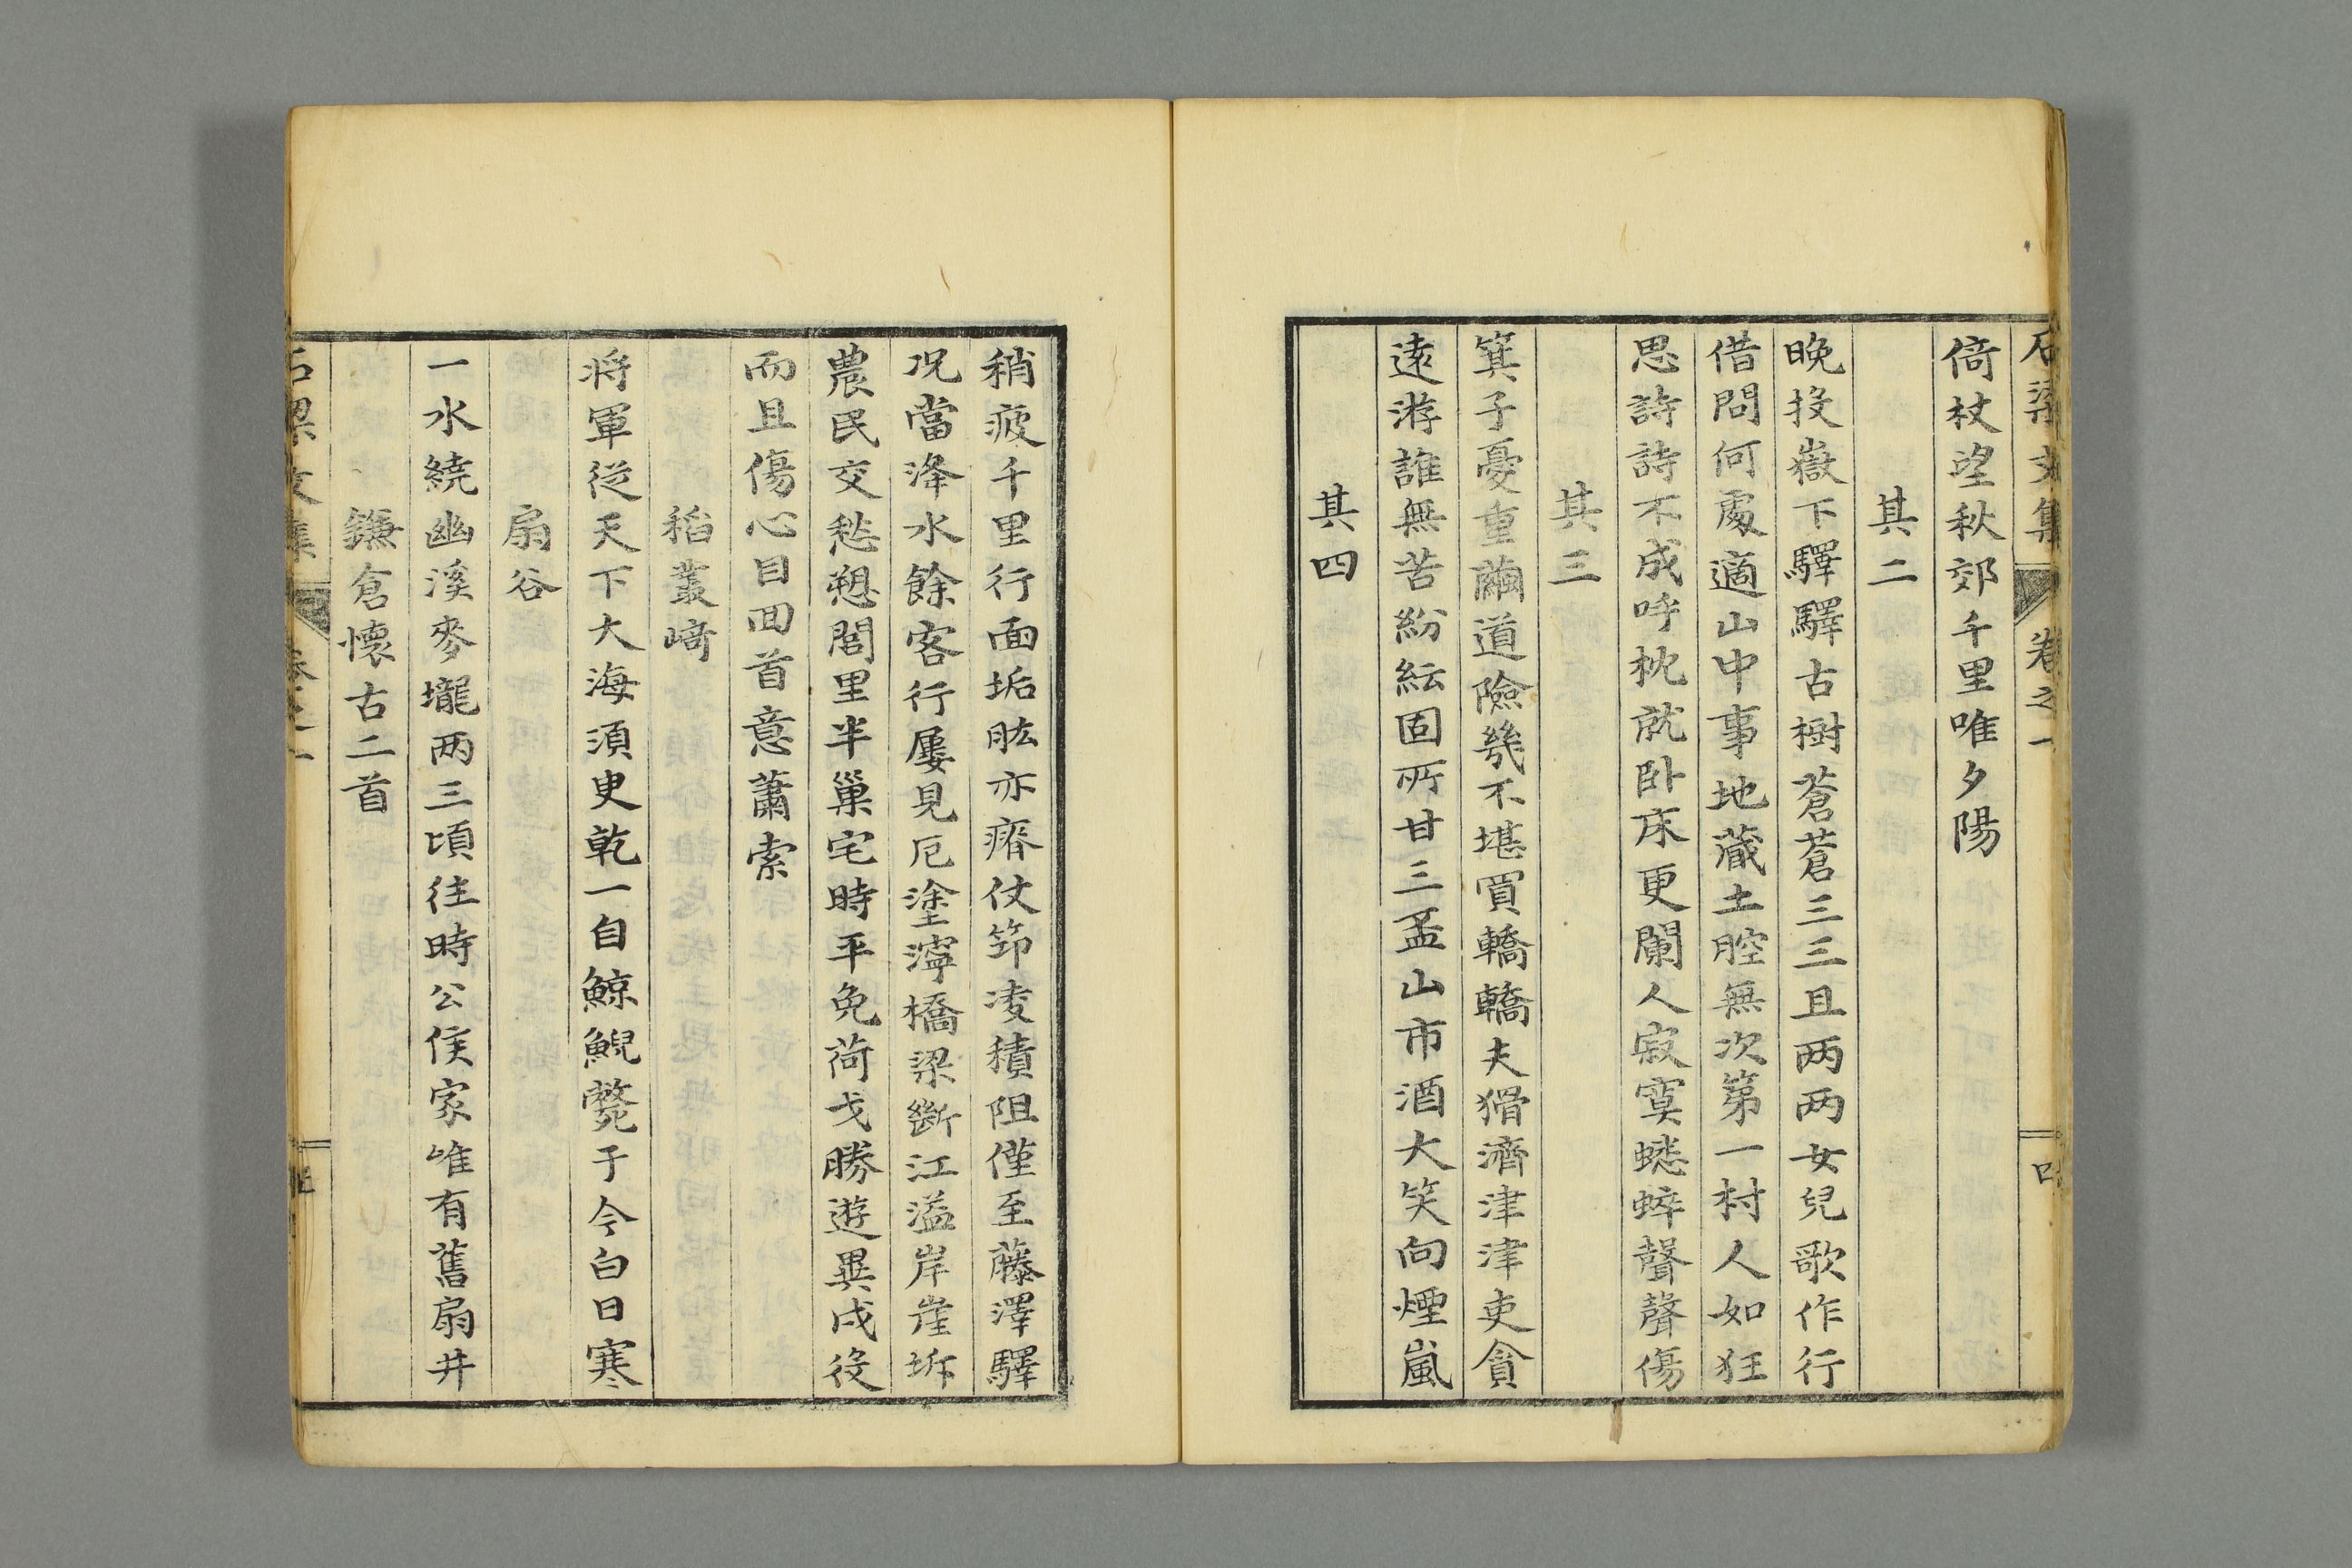 石梁文集 卷之一
倚杖望秋郊千里唯夕陽
其二
晚投嶽下驛驛古樹蒼蒼三三且两两女兒歌作行
借問何處適山中事地藏土腔無次第一村人如狂
思詩詩不成呼枕就卧床更闌人寂寞蟋蟀聲聲傷
其三
箕子憂重繭道險幾不堪買轎轎夫猾濟津津吏貪
遠游誰無苦紛紜固所甘三盃山市酒大笑向煙嵐
其四
稍疲千里行面垢肱亦瘠仗節凌積阻僅至藤澤驛
况當洚水餘客行屢見厄塗濘橋梁斷江溢岸崖坼
農民交愁怨閭里半巢宅時平免荷戈勝遊異戍役
而且傷心目回首意蕭索
稻叢﨑
将軍從天下大海湏臾乾一自鯨鯢斃于今白日寒
扇谷
一水繞幽溪麥壠两三頃往時公侯家唯有舊扇井
鎌倉懷古二首
石梁文集 卷之一